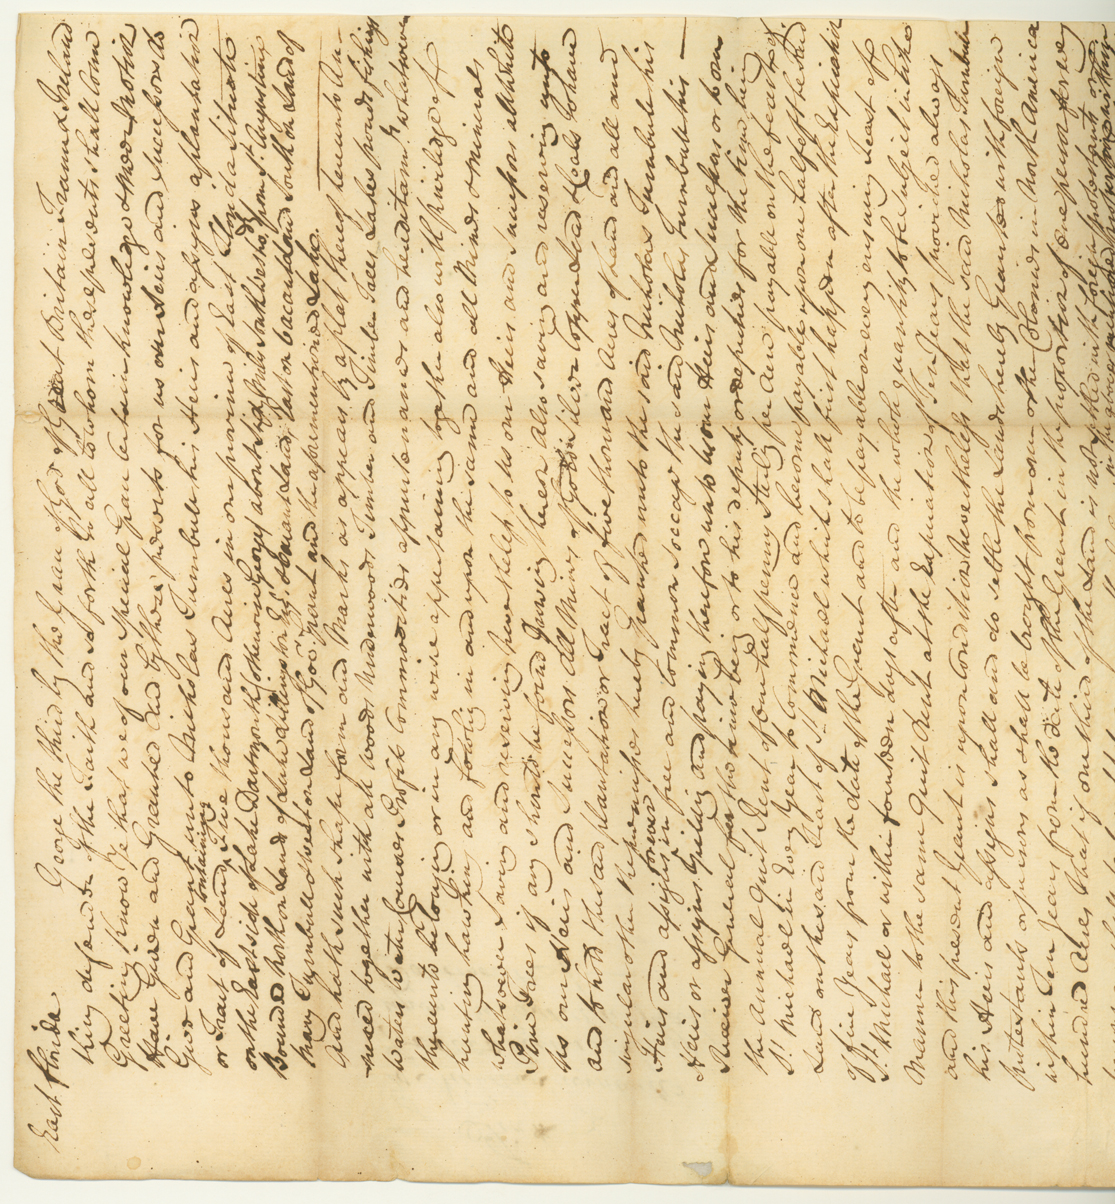 East Florida
George the third by the Grace of God of Great Britain France and Ireland
King defender of the Faith and so forth To all to whom these presents shall come
Greeting know Ye that we of our special Grace certain knowledge & meer motion
Have Given and Granted and by these presents for us our heirs and Successors do
Give and Grant unto Nicholas Turnbull his Heirs and assigns a plantation
or Tract of Land containing five thousand Acres in our province of East Florida situate
on the East side of Lake Dartmouth otherwise George about sixty miles southwestward from St. Augustine
Bounded north on Land of Luke dillington Esqr. & vacant Land, East on vacant land South on Land of
Mary Turnbull & west on land of Govr. Grant and the aforementioned Lake.
And hath such shape form and Marks as appears by a plat thereof hereunto An-
nexed together with all woods Underwoods Timber and Timber Trees Lakes ponds fishings
Waters Water Courses Profits Commodities appurtenances and hereditamts. whatsoever
thereunto belonging or in any wise appertaining together also with priviledge of
hunting hawking and fowling in and upon the same and all Mines & minerals
whatsoever saving and reserving nevertheless to us our Heirs and successors all white
Pine Trees if any should be found growing hereon also saving and reserving unto
us our Heirs and Successors All Mines of Gold Silver Copper Lead & Coals To have
and to hold the said plantation or Tract of five thousand Acres of Land and all and
singular other the premises hereby Granted unto the said Nicholas Turnbull his
Heirs and assigns forever in free and Common soccage the said Nicholas Turnbull his
Heirs or assigns Yielding and paying therefore unto us our Heirs and Successors or to our
Receiver General for the time being or to his deputy or deputies for the time being
the Annual Quit Rent of one half penny Sterling per Acre payable on the feast of
St. Michael in Every Year to Commence and become payable upon one half of the said
Land on the said Feast of St. Michael which shall first happen after the Expiration
of five Years from the date of the Grant and to be payable on every ensuing Feast of
St. Michael or within fourteen days after and the whole quantity to be subject in like
Manner to the same Quit Rent at the Expiration of Ten Years provided always
and this present Grant is upon Condition nevertheless that the said Nicholas Turnbull
his Heirs and assigns shall and do settle the Lands hereby Granted with foreign
Protestants or persons as shall be brought from our other Colonies in North America
within Ten Years from the date of the Grant in the proportion of one person for every
hundred Acres That if one third of the Land is not settled with foreign protestants or